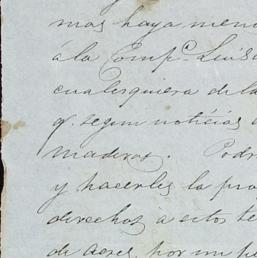 mas haya meno
á la Compᶜ. Luisa
cualesquiera de la
q. segun noticias
maderas. Podr
y hacerles la pro
derechos á estos te
de Acres, por un pe